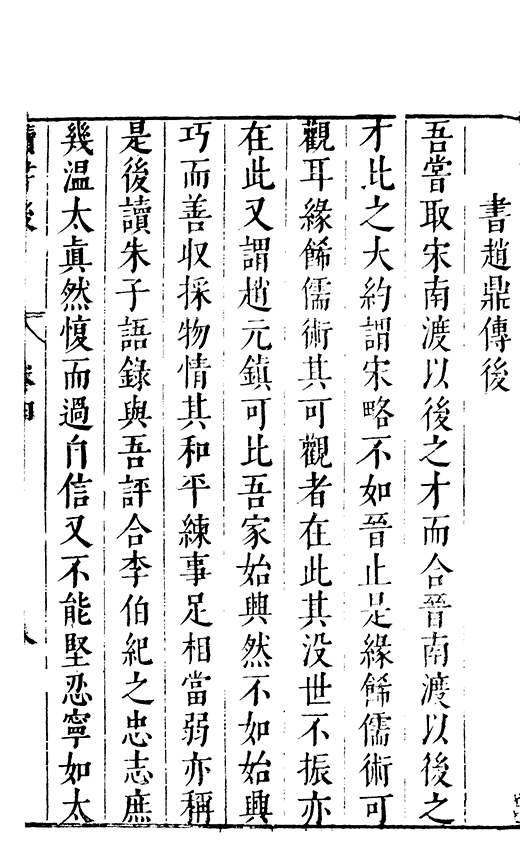 書趙鼎傳後
吾嘗取宋南渡以後之才而合晉南渡以後之
才比之大約謂宋略不如晉止是緣餙儒術可
觀耳緣餙儒術其可觀者在此其没世不振亦
在此又謂趙元鎮可比吾家始興然不如始興
巧而善収採物情其和平練事足相當弱亦稱
是後讀朱子語錄與吾評合李伯紀之忠志庶
幾温太眞然愎而過自信又不能堅忍寧如太
讀書後
卷四
八